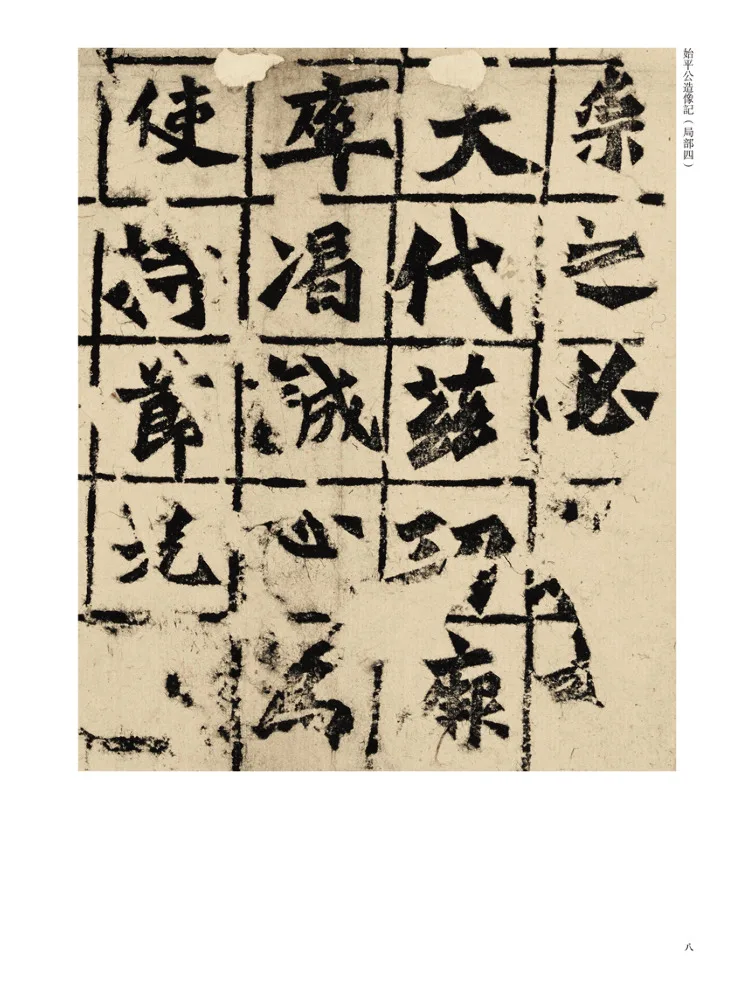 始平公造像記(局部四)
崇之必
大代茲功厥
率渴誠心為
使持節洸
八